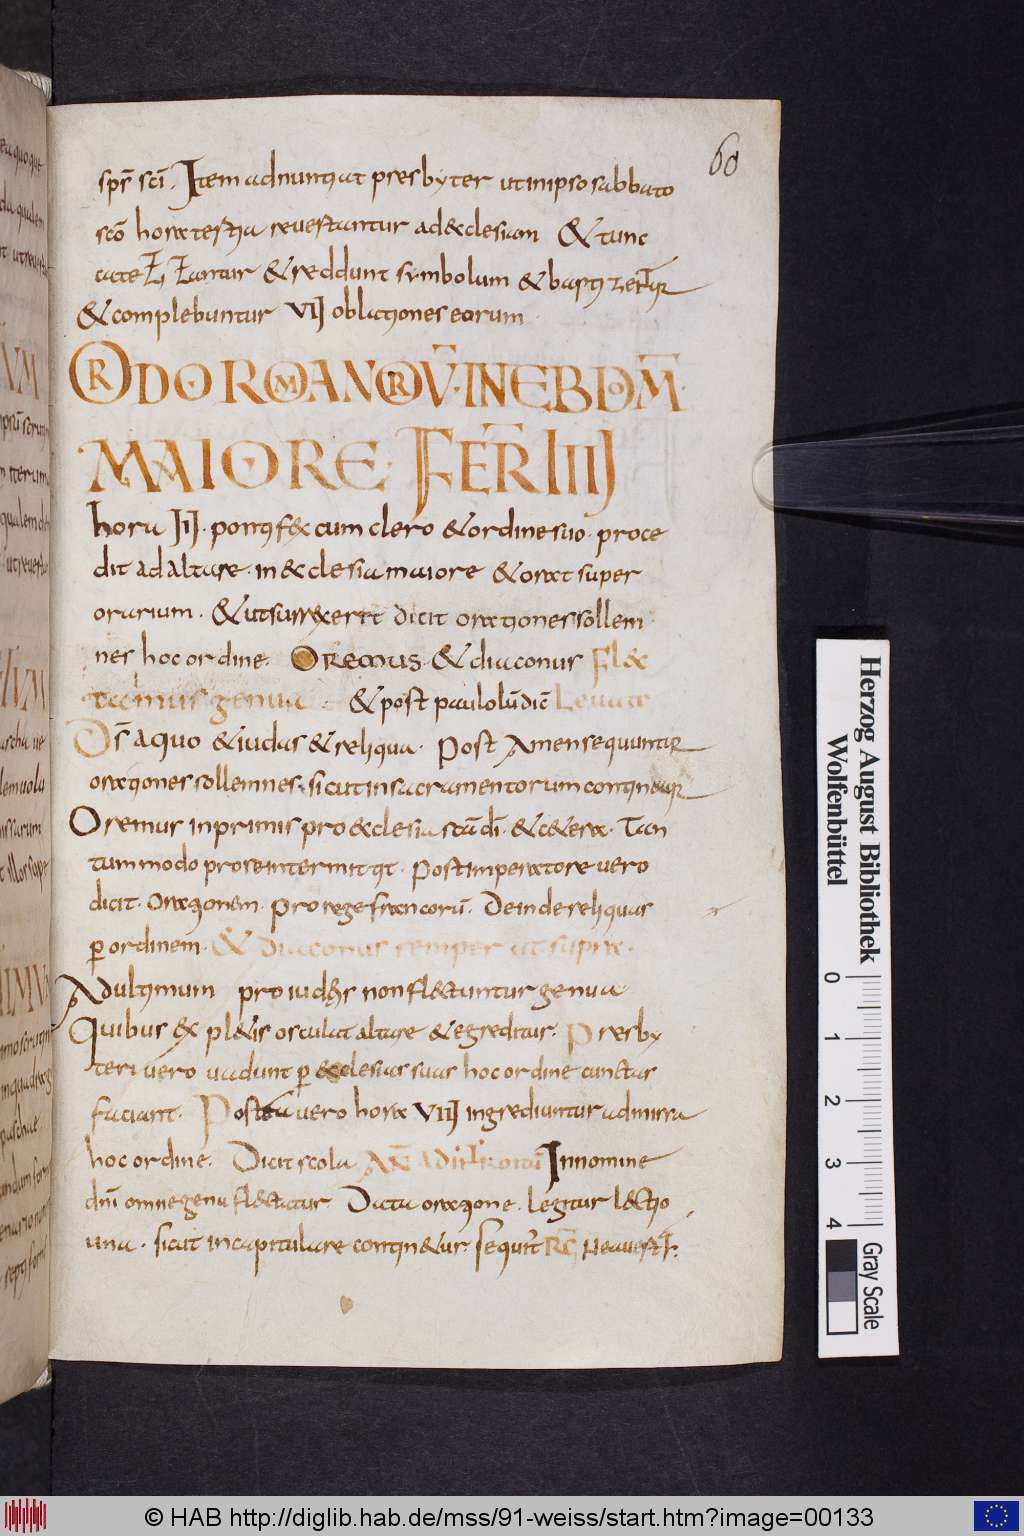 60
sps̄ scī. Item adnuntiat presbyter ut in ipso sabbato
scō hora tertia reuertantur ad ecclesiam & tunc
& complebuntur VII oblationes eorum
ORDO ROMANORŪ. IN EBDOM̄.
MAIORE. FER̄ IIII
hora III. pontifex cum clero & ordine suo. proce
dit ad altare. in ecclesia maiore & orat super
orarium. & ut surrexerit dicit orationes sollem
nes hoc ordine. OREMUS. & diaconus Fle
ctamus genua. & post paululū dic̄ Leuate
Ds̄ a quo & iudas & reliqua. Post Amen sequuntur
orationes sollemnes. sicut in sacramentorum continetur
Oremus in primis pro ecclesia scā dī. & cetera. Tan
tum modo pro se intermittit. Post imperatore uero
dicit. Orationem. pro rege francorū. Deinde reliquas
ꝑ ordinem. & diaconus semper ut supra.
Ad ultimum pro iudeis non flectuntur genua
Quibus expletis osculat altare & egreditur. Presby
teri uero uadunt ꝑ ecclesias suas hoc ordine cunctas
faciant. Postea uero hora VIII ingrediuntur ad missa
hoc ordine. Dicit scola AN̄ AD INTROITŪ In nomine
dnī omne genu flectatur. Dicta oratione. legitur lectio
una. sicut in capitulare continetur. sequit̄
Herzog August Bibliothek
Wolfenbüttel
0 1 2 3 4
Gray Scale
© HAB http://diglib.hab.de/mss/91-weiss/start.htm?image=00133